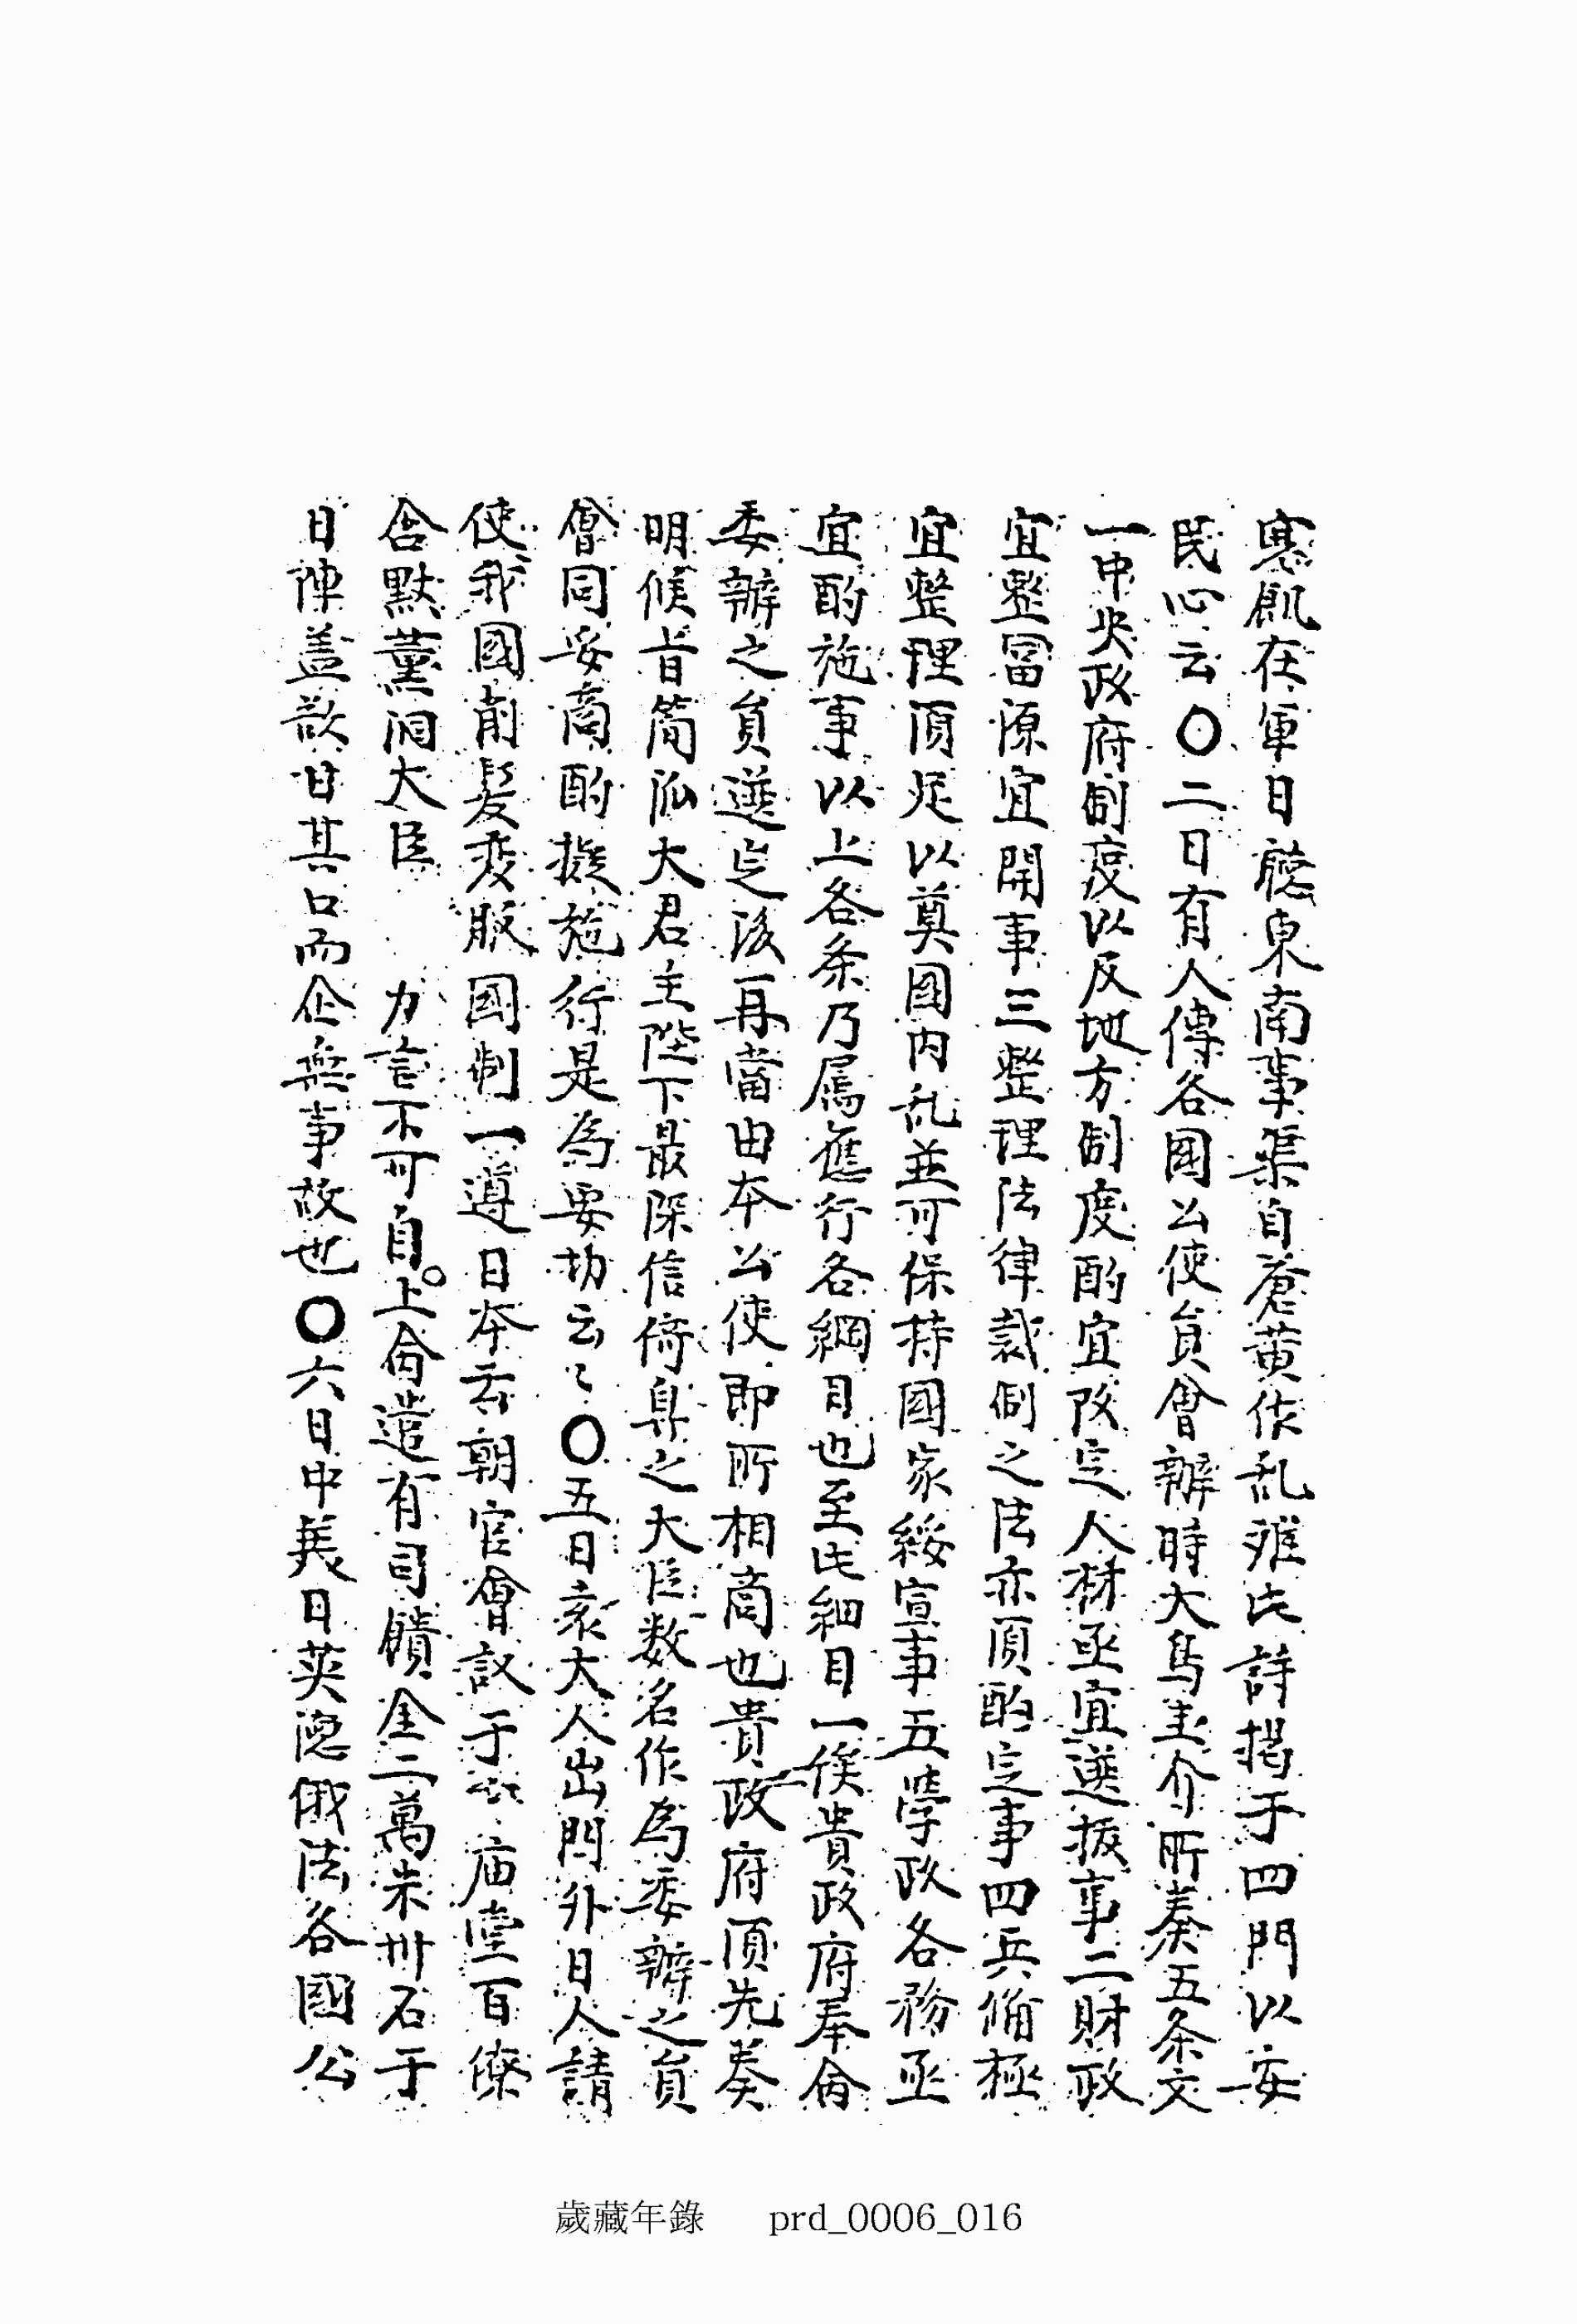 寒飢在軍日聽東南事渠自蒼黃作乱雅比詩揭于四門以安
民心云〇二日有人傳各國公使負會辦時大鳥圭介所奏五条文
一中央政府制度以及地方制度酌宜改定人材亟宜選拔事二財政
宜整冨源宜開事三整理法律裁制之法亦須酌定事四兵備極
宜整理須足以奠國內乱並可保持國家綏寧事五學政各務亟
宜酌施事以上各条乃属應行各綱目也至此細目一俟貴政府奉侖
委辦之負選定後再當由本公使即所相商也貴政府須先奏
明候旨簡派大君主陛下最深信倚㚖之大臣数名作為委辦之負
會同妥商酌擬施行是為要切云〻〇五日袁大人出門外日人請
使我國削髮変服國制一遵日本云朝官會議于 庙堂百僚
含默薰洞大臣 力言不可自上侖遣有司饋金二萬朱卅石于
日陣盖欲甘其口而企無事故也〇六日中美日英徳俄法各國公
歲藏年錄 prd_0006_016